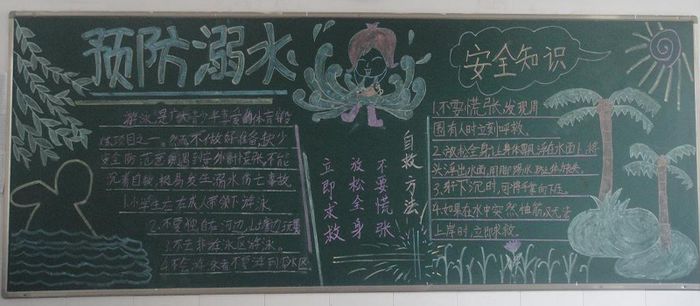 预防溺水
游泳是广大青少年喜爱的体育锻
炼项目之一。然而不做好准备、缺少
安全防范意识,遇到意外时慌张、不能
沉着自救,极易发生溺水伤亡事故。
1.小学生应在成人带领下游泳。
2.不要独自在河边、山塘边玩耍
3.不去非游泳区游泳。
4.不会游泳者不要游到深水区
自救方法!
不要慌张
放松全身
立即求救
安全知识
1.不要慌张,发现周
围有人时立刻呼救。
2.放松全身,让身体漂浮在水面上,将
头浮出水面,用脚踢水,防止体力丧失。
3.身体下沉时,可将手掌向下压。
4.如果在水中突然抽筋,又无法
上岸时,立即求救。